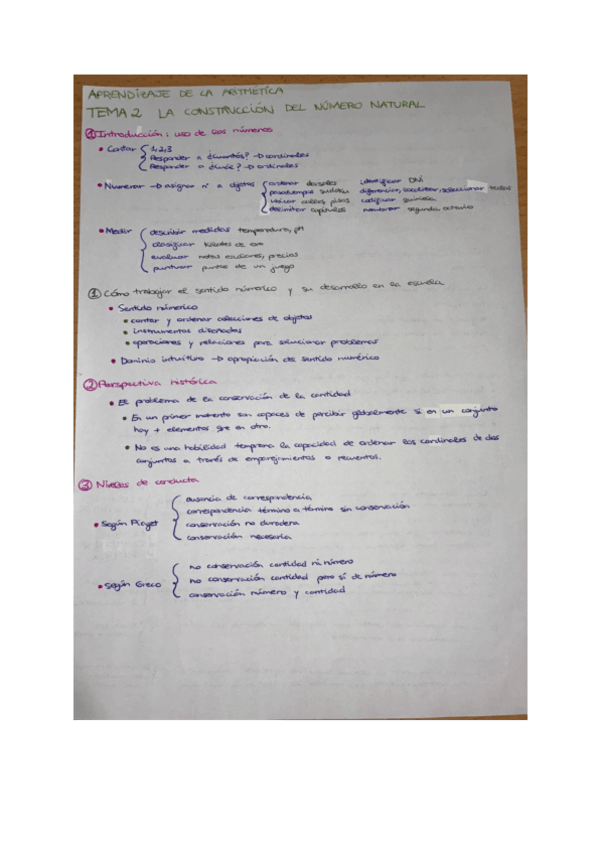 APRENDIZAJE DE LA ARITMÉTICA
TEMA 2 LA CONSTRUCCIÓN DEL NÚMERO NATURAL
Introducción: uso de los números
• Contar { 1,2,3
Responder a ¿cuántos? → cardinales
Responder a → ordinales
• Numerar → asignar nº a objetos { ordenar dorsales identificar DNI
pasatiempos sudoku diferenciar, seleccionar teclas
ubicar calles, pisos codificar quiniela
delimitar capítulos nombrar segundo, octavio
• Medir { describir medidas temperatura, pH
clasificar
evaluar notas escolares, precios
puntuar puntos de un juego
① Cómo trabajar el sentido númerico y su desarrollo en la escuela
• Sentido númerico
• contar y ordenar colecciones de objetos
• instrumentos diseñados
• operaciones y relaciones para solucionar problemas
• Dominio intuitivo → apropiación de sentido numérico
② Perspectiva histórica
• El problema de la conservación de la cantidad
• En un primer momento son capaces de percibir globalmente si en un conjunto
hay + elementos que en otro.
• No es una habilidad temprana la capacidad de ordenar los cardinales de dos
conjuntos a través de emparejamientos o recuentos.
③ Niveles de conducta
• Según Piaget { ausencia de correspondencia
correspondencia término a término sin conservación
conservación no duradera
conservación necesaria
• Según Greco { no conservación cantidad ni número
no conservación cantidad pero sí de número
conservación número y cantidad